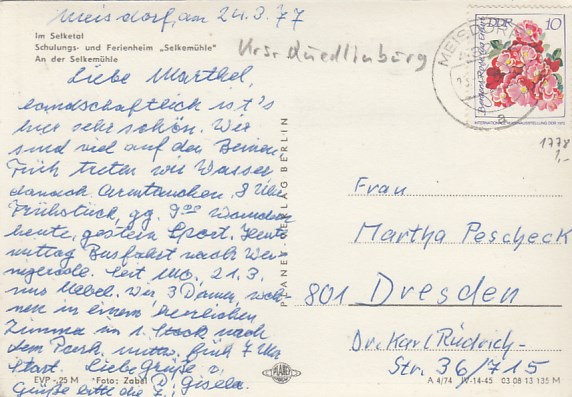 Meisdorf, am 24.3.77
Im Selketal
Schulungs- und Ferienheim „Selkemühle"
An der Selkemühle
Krs. Quedlinburg
MEISDORF
DDR 10
INTERNATIONALE
1778
1,-
Liebe Marthel,
landschaftlich ist's
hier sehr schön. Wir
sind viel auf den Beinen
Früh treten wir Wasser
danach Armtauchen, 8 Uhr
Frühstück, gg. 9⁰⁰ Wandern
heute, gestern Sport. Heute
mittag Busfahrt nach Wer-
nigerode. Seit 21.3.
nur Nebel. Wir 3 Damen woh-
nen in einem herrlichen
Zimmer im 1. Stock nach
dem Park. früh 7 Uhr
Start. Liebe Grüße
D. Gisela.
Grüße bitte die
PLANET-VERLAG BERLIN
Frau
Martha Pescheck
801 Dresden
Dr. Karl Rüdrich-
Str. 36/715
PLANET
EVP -25 M Foto: Zabel
A 4/74 IV-14-45 03 08 13 135 M